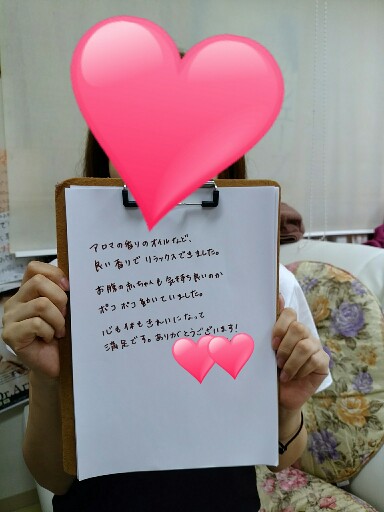 アロマの香りのオイルなどで、
良い香りでリラックスできました。
お腹の赤ちゃんも気持ち良いのか
ポコポコ動いていました。
心も体もきれいになって
満足です。ありがとうございます!